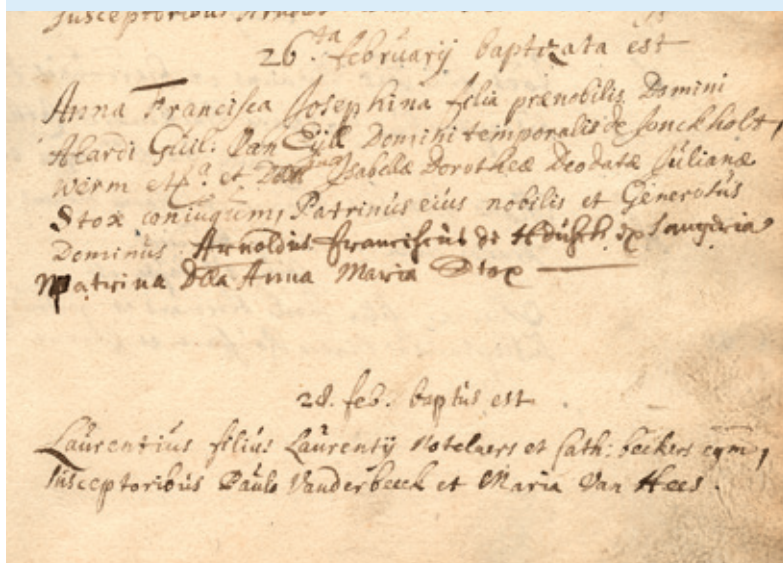 susceptoribus
26.ta februarij baptizata est
Anna Francisca Josephina filia prænobilis Domini
Alardi Guil: Van Eÿll Domini temporalis de Jonckholt,
werm etca. et Dnæ Isabellæ Dorotheæ Deodatæ Julianæ
Stox coniugum, Patrinus eius nobilis et Generosus
Dominus Arnoldus Franciscus de
Matrina Dna Anna Maria Stox
28. feb. baptūs est
Laurentius filius Laurentij Notelaers et Cath: beckers eqm,
susceptoribus Paulo Vanderbeeck et Maria Van Hees.